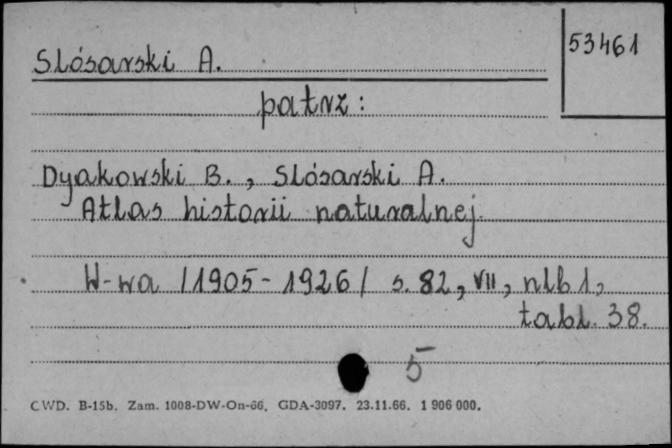 53461
Slósarski A.
patrz:
Dyakowski B., Slósarski A.
Atlas historii naturalnej.
W-wa /1905-1926/ s. 82, VII, nlb 1,
tabl. 38.
5
CWD. B-15b. Zam. 1008-DW-On-66. GDA-3097. 23.11.66. 1 906 000.